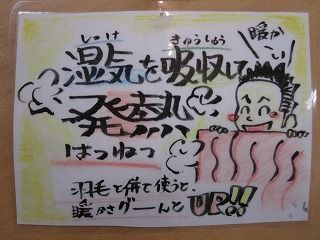 しっけ きゅうしゅう
湿気を吸収して
発熱
はつねつ
羽毛と併て使うと、
暖かさグーんと UP!!
暖か